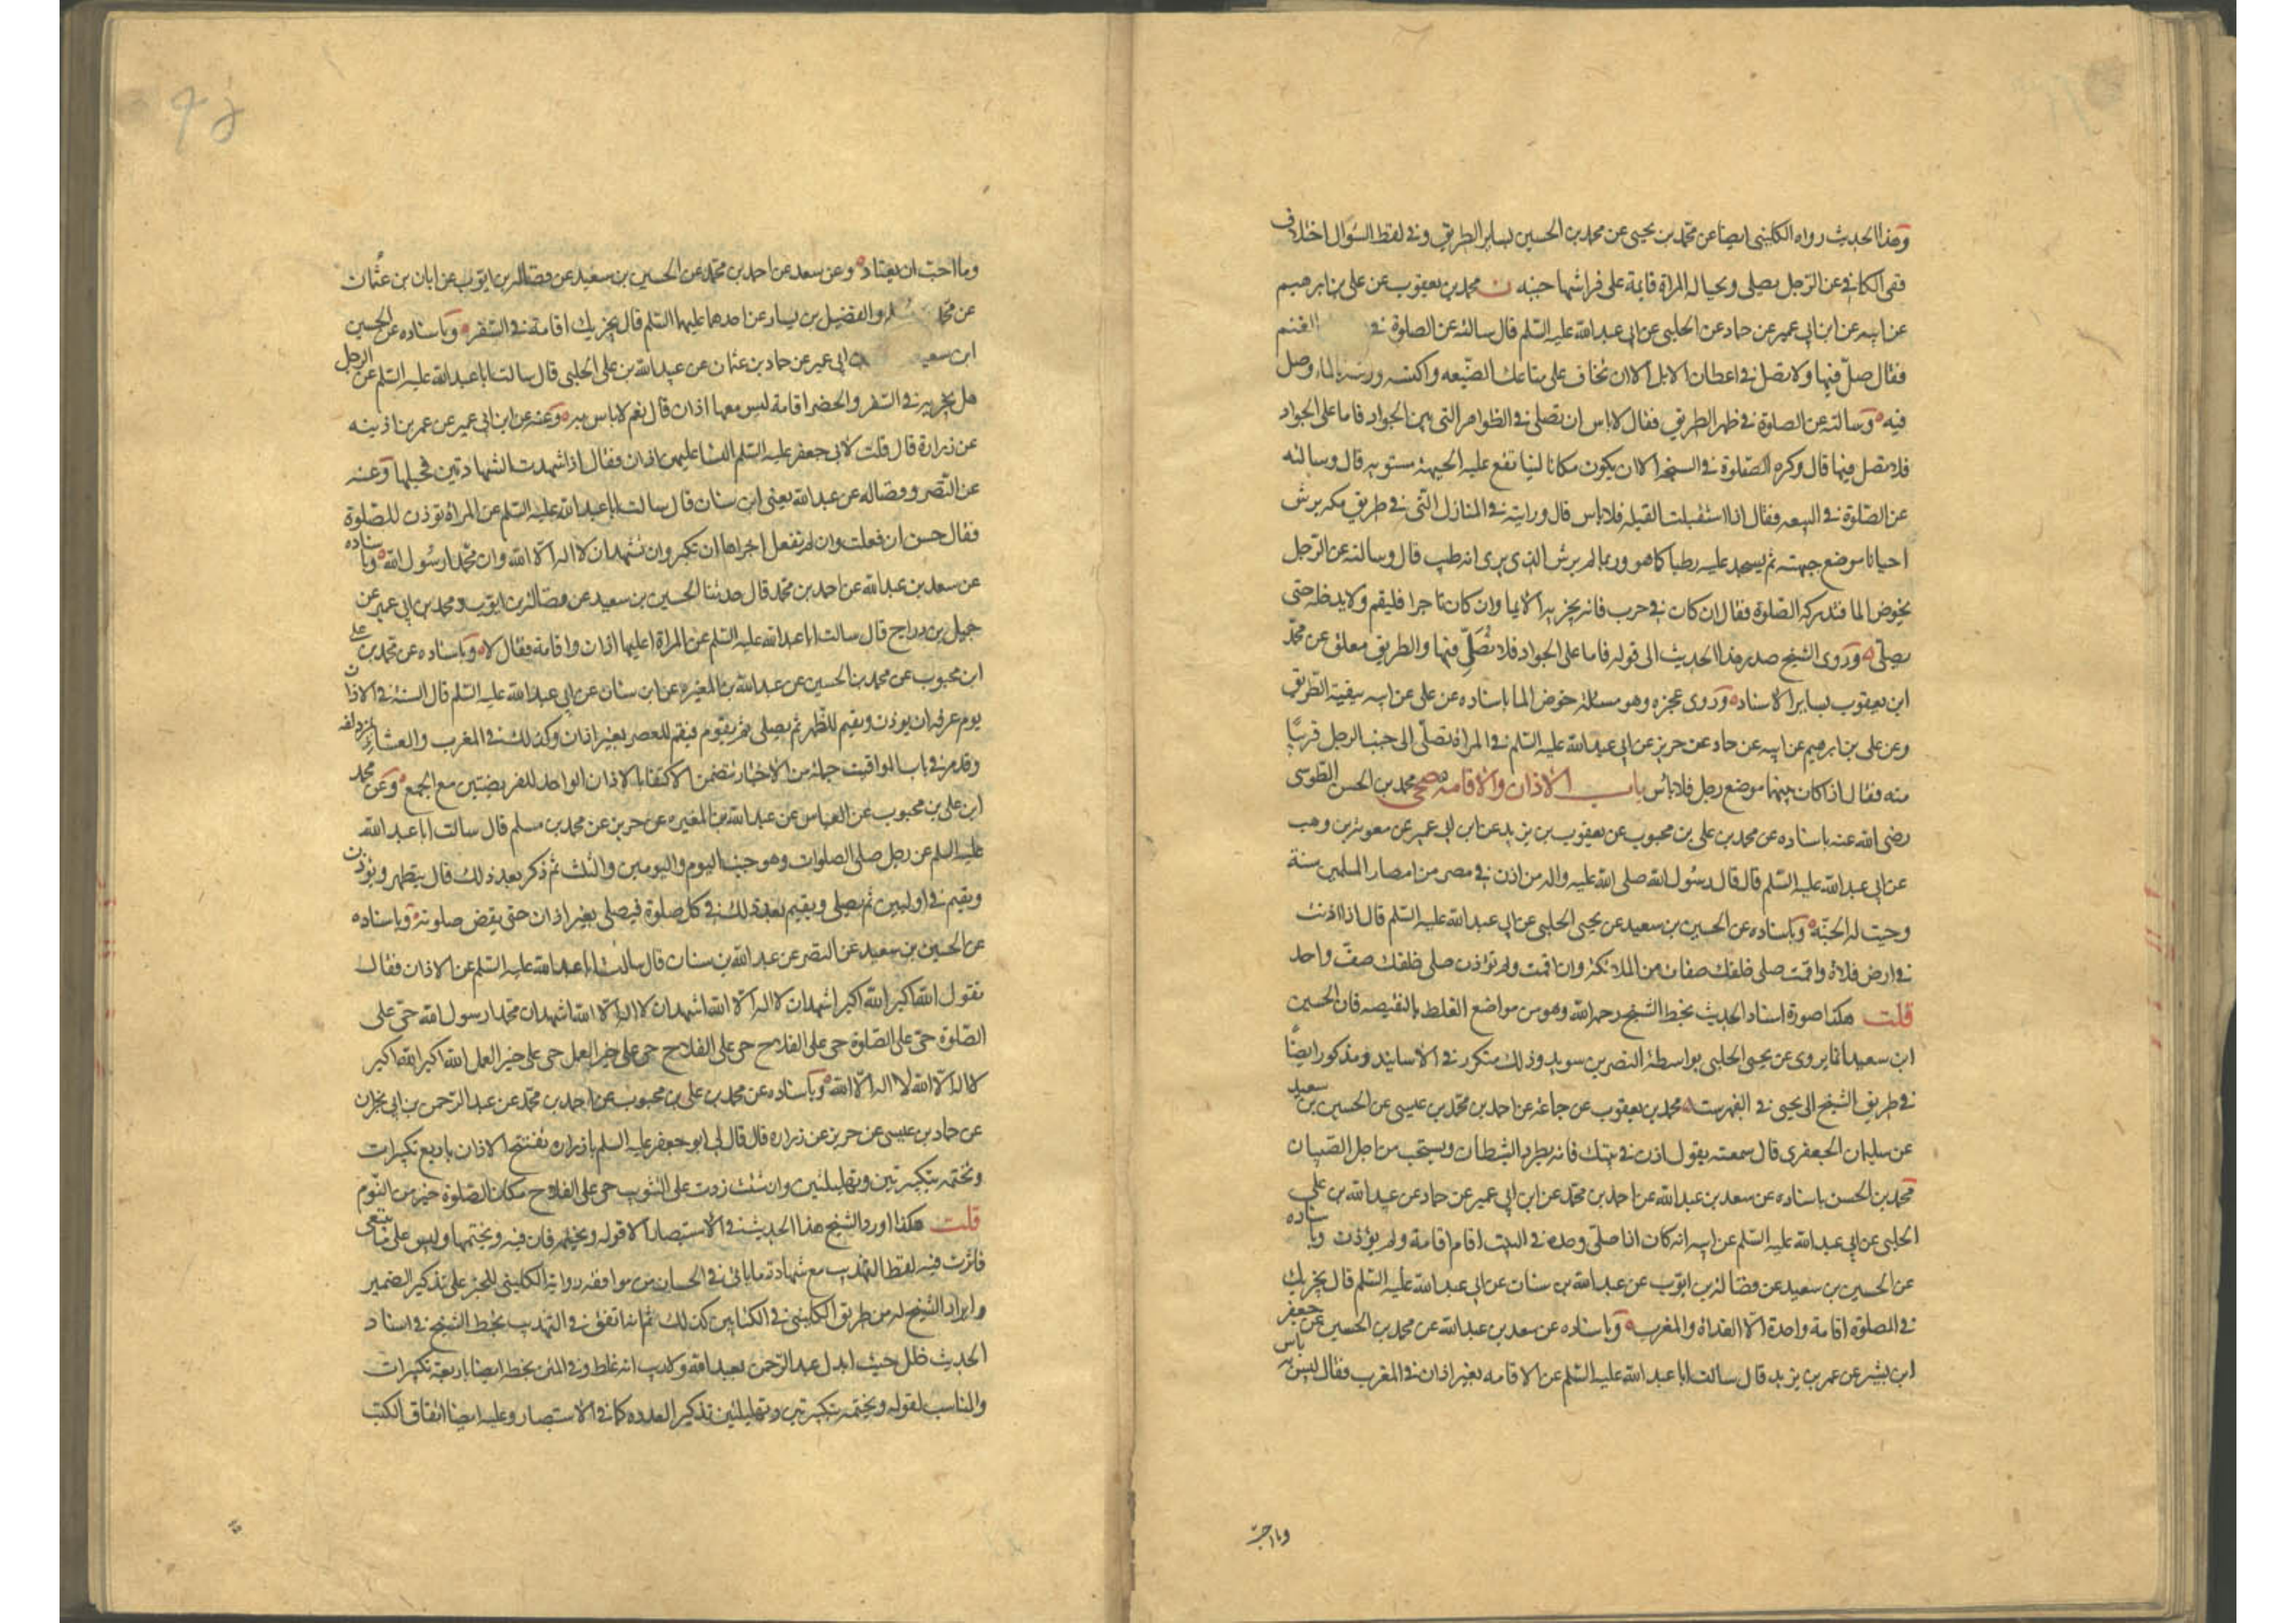 وهذا الحديث رواه الكليني ايضا عن محمد بن يحيى عن محمد بن الحسين بساير الطريق وفي لفظ السؤال اختلاف
ففي الكافي عن الرجل يصلي وبحياله المراة قايمة على فراشها جنبه ن محمد بن يعقوب عن علي بن ابرهيم
عن ابيه عن ابن ابي عمير عن حماد عن الحلبي عن ابي عبد الله عليه السلم قال سالته عن الصلوة في الغنم
فقال صل فيها ولا تصل في اعطان الابل الا ان تخاف على متاعك الضيعه فاكنسه ورشه بالماء وصل
فيه وسالته عن الصلوة في ظهر الطريق فقال لا باس ان تصلي في الظواهر التي بين الجواد فاما على الجواد
فلا تصل فيها قال وكره الصلوة في السبخه الا ان يكون مكانا لينا تقع عليه الجبهة مستويه قال وسالته
عن الصلوة في البيعه فقال اذا استقبلت القبله فلا باس قال ورايته في المنازل التي في طريق مكه يرش
احيانا موضع جبهته ثم يسجد عليه رطبا كما هو وربما لم يرش الذي يرى انه طيب قال وسالته عن الرجل
يخوض الما فتدركه الصلوة فقال ان كان في حرب فانه يجزيه الايما وان كان تاجرا فليقم ولا يدخله حتى
يصلي وروى الشيخ صدر هذا الحديث الى قوله فاما على الجواد فلا تصل فيها والطريق معلق عن محمد
ابن يعقوب بساير الاسناد وروى عجزه وهو مسالة خوض الما باسناده عن علي عن ابيه ببقية الطريق
وعن علي بن ابرهيم عن ابيه عن حماد عن حريز عن ابي عبد الله عليه السلم في المراة تصلي الى جنب الرجل قريبا
منه فقال اذا كان بينهما موضع رجل فلا باس باب الاذان والاقامه صحي محمد بن الحسن الطوسي
رضي الله عنه باسناده عن محمد بن علي بن محبوب عن يعقوب بن يزيد عن ابن ابي عمير عن معوية بن وهب
عن ابي عبد الله عليه السلم قال قال رسول الله صلى الله عليه واله من اذن في مصر من امصار المسلمين سنة
وجبت له الجنة وباسناده عن الحسين بن سعيد عن يحيى الحلبي عن ابي عبد الله عليه السلم قال اذا اذنت
في ارض فلاة واقمت صلى خلفك صفان من الملائكة وان اقمت ولم تؤذن صلى خلفك صف واحد
قلت هكذا صورة اسناد الحديث بخط الشيخ رحمه الله وهو من مواضع الغلط بالنقيصه فان الحسين
ابن سعيد انما يروي عن يحيى الحلبي بواسطة النضر بن سويد وذلك متكرر في الاسانيد ومذكور ايضا
في طريق الشيخ الى يحيى في الفهرست محمد بن يعقوب عن جماعة عن احمد بن محمد بن عيسى عن الحسين بن سعيد
عن سليمان الجعفري قال سمعته يقول اذن في بيتك فانه يطرد الشيطان ويستحب من اجل الصبيان
محمد بن الحسن باسناده عن سعد بن عبد الله عن احمد بن محمد عن ابن ابي عمير عن حماد عن عبيد الله بن علي
الحلبي عن ابي عبد الله عليه السلم عن ابيه انه كان اذا صلى وحده في البيت اقام اقامة ولم يؤذن وباسناده
عن الحسين بن سعيد عن فضالة بن ايوب عن عبد الله بن سنان عن ابي عبد الله عليه السلم قال يجزيك
في الصلوة اقامة واحدة الا الغداة والمغرب وباسناده عن سعد بن عبد الله عن محمد بن الحسين عن جعفر
ابن بشير عن عمر بن يزيد قال سالت ابا عبد الله عليه السلم عن الاقامه بغير اذان في المغرب فقال ليس به باس
وما احب
وما احب ان يعتاد وعن سعد عن احمد بن محمد عن الحسين بن سعيد عن فضالة بن ايوب عن ابان بن عثمان
عن محمد والفضيل بن يسار عن احدهما عليهما السلم قال يجزيك اقامة في السفر وباسناده عن الحسين
ابن سعيد ابي عمير عن حماد بن عثمان عن عبيد الله بن علي الحلبي قال سالت ابا عبد الله عليه السلم عن الرجل
هل يجزيه في السفر والحضر اقامة ليس معها اذان قال نعم لا باس به وعنه عن ابن ابي عمير عن عمر بن اذينه
عن زرارة قال قلت لابي جعفر عليه السلم النسا عليهن اذان فقال اذا شهدت الشهادتين فحسبها وعنه
عن النضر وفضاله عن عبد الله يعني ابن سنان قال سالت ابا عبد الله عليه السلم عن المراة تؤذن للصلوة
فقال حسن ان فعلت وان لم تفعل اجزاها ان تكبر وان تشهد ان لا اله الا الله وان محمدا رسول الله وباسناده
عن سعد بن عبد الله عن احمد بن محمد قال حدثنا الحسين بن سعيد عن فضالة بن ايوب ومحمد بن ابي عمير عن
جميل بن دراج قال سالت ابا عبد الله عليه السلم عن المراة اعليها اذان واقامة فقال لا وباسناده عن محمد بن علي
ابن محبوب عن محمد بن الحسين عن عبد الله بن المغيره عن ابن سنان عن ابي عبد الله عليه السلم قال السنة في الاذان
يوم عرفه ان يوذن ويقيم للظهر ثم يصلي ثم يقوم فيقيم للعصر بغير اذان وكذلك في المغرب والعشاء بمزدلفه
وقد مر في باب المواقيت جملة من الاخبار تتضمن الاكتفا بالاذان الواحد للفريضتين مع الجمع وعن محمد
ابن علي بن محبوب عن العباس عن عبد الله بن المغيره عن حريز عن محمد بن مسلم قال سالت ابا عبد الله
عليه السلم عن رجل صلى الصلوات وهو جنب اليوم واليومين والثلث ثم ذكر بعد ذلك قال يتطهر ويؤذن
ويقيم في اوليهن ثم يصلي ويقيم بعد ذلك في كل صلوة فيصلي بغير اذان حتى يقضى صلوته وباسناده
عن الحسين بن سعيد عن النضر عن عبد الله بن سنان قال سالت ابا عبد الله عليه السلم عن الاذان فقال
تقول الله اكبر الله اكبر اشهد ان لا اله الا الله اشهد ان لا اله الا الله اشهد ان محمدا رسول الله حي على
الصلوة حي على الصلوة حي على الفلاح حي على الفلاح حي على خير العمل حي على خير العمل الله اكبر الله اكبر
لا اله الا الله لا اله الا الله وباسناده عن محمد بن علي بن محبوب عن احمد بن محمد عن عبد الرحمن بن ابي نجران
عن حماد بن عيسى عن حريز عن زراره قال قال لي ابو جعفر عليه السلم يا زراره تفتتح الاذان باربع تكبيرات
وتختمه بتكبيرتين وتهليلتين وان شئت زدت على التثويب حي على الفلاح مكان الصلوة خير من النوم
قلت هكذا اورد الشيخ هذا الحديث في الاستبصار الا قوله وتختمه فان فيه وتختمها وليس على ما ينبغي
فاثرت فيه لفظ التهذيب مع شهادة ما ياتي في الحسان من موافقه رواية الكليني للخبر على تذكير الضمير
وايراد الشيخ له من طريق الكليني في الكتابين كذلك ثم انه اتفق في التهذيب بخط الشيخ في اسناد
الحديث خلل حيث ابدل عبد الرحمن بعبد الله ولا ريب انه غلط وفي المتن بخطه ايضا باربعة تكبيرات
والمناسب لقوله وتختمه بتكبيرتين وتهليلتين تذكير العدد كما في الاستبصار وعليه ايضا اتفاق الكتب